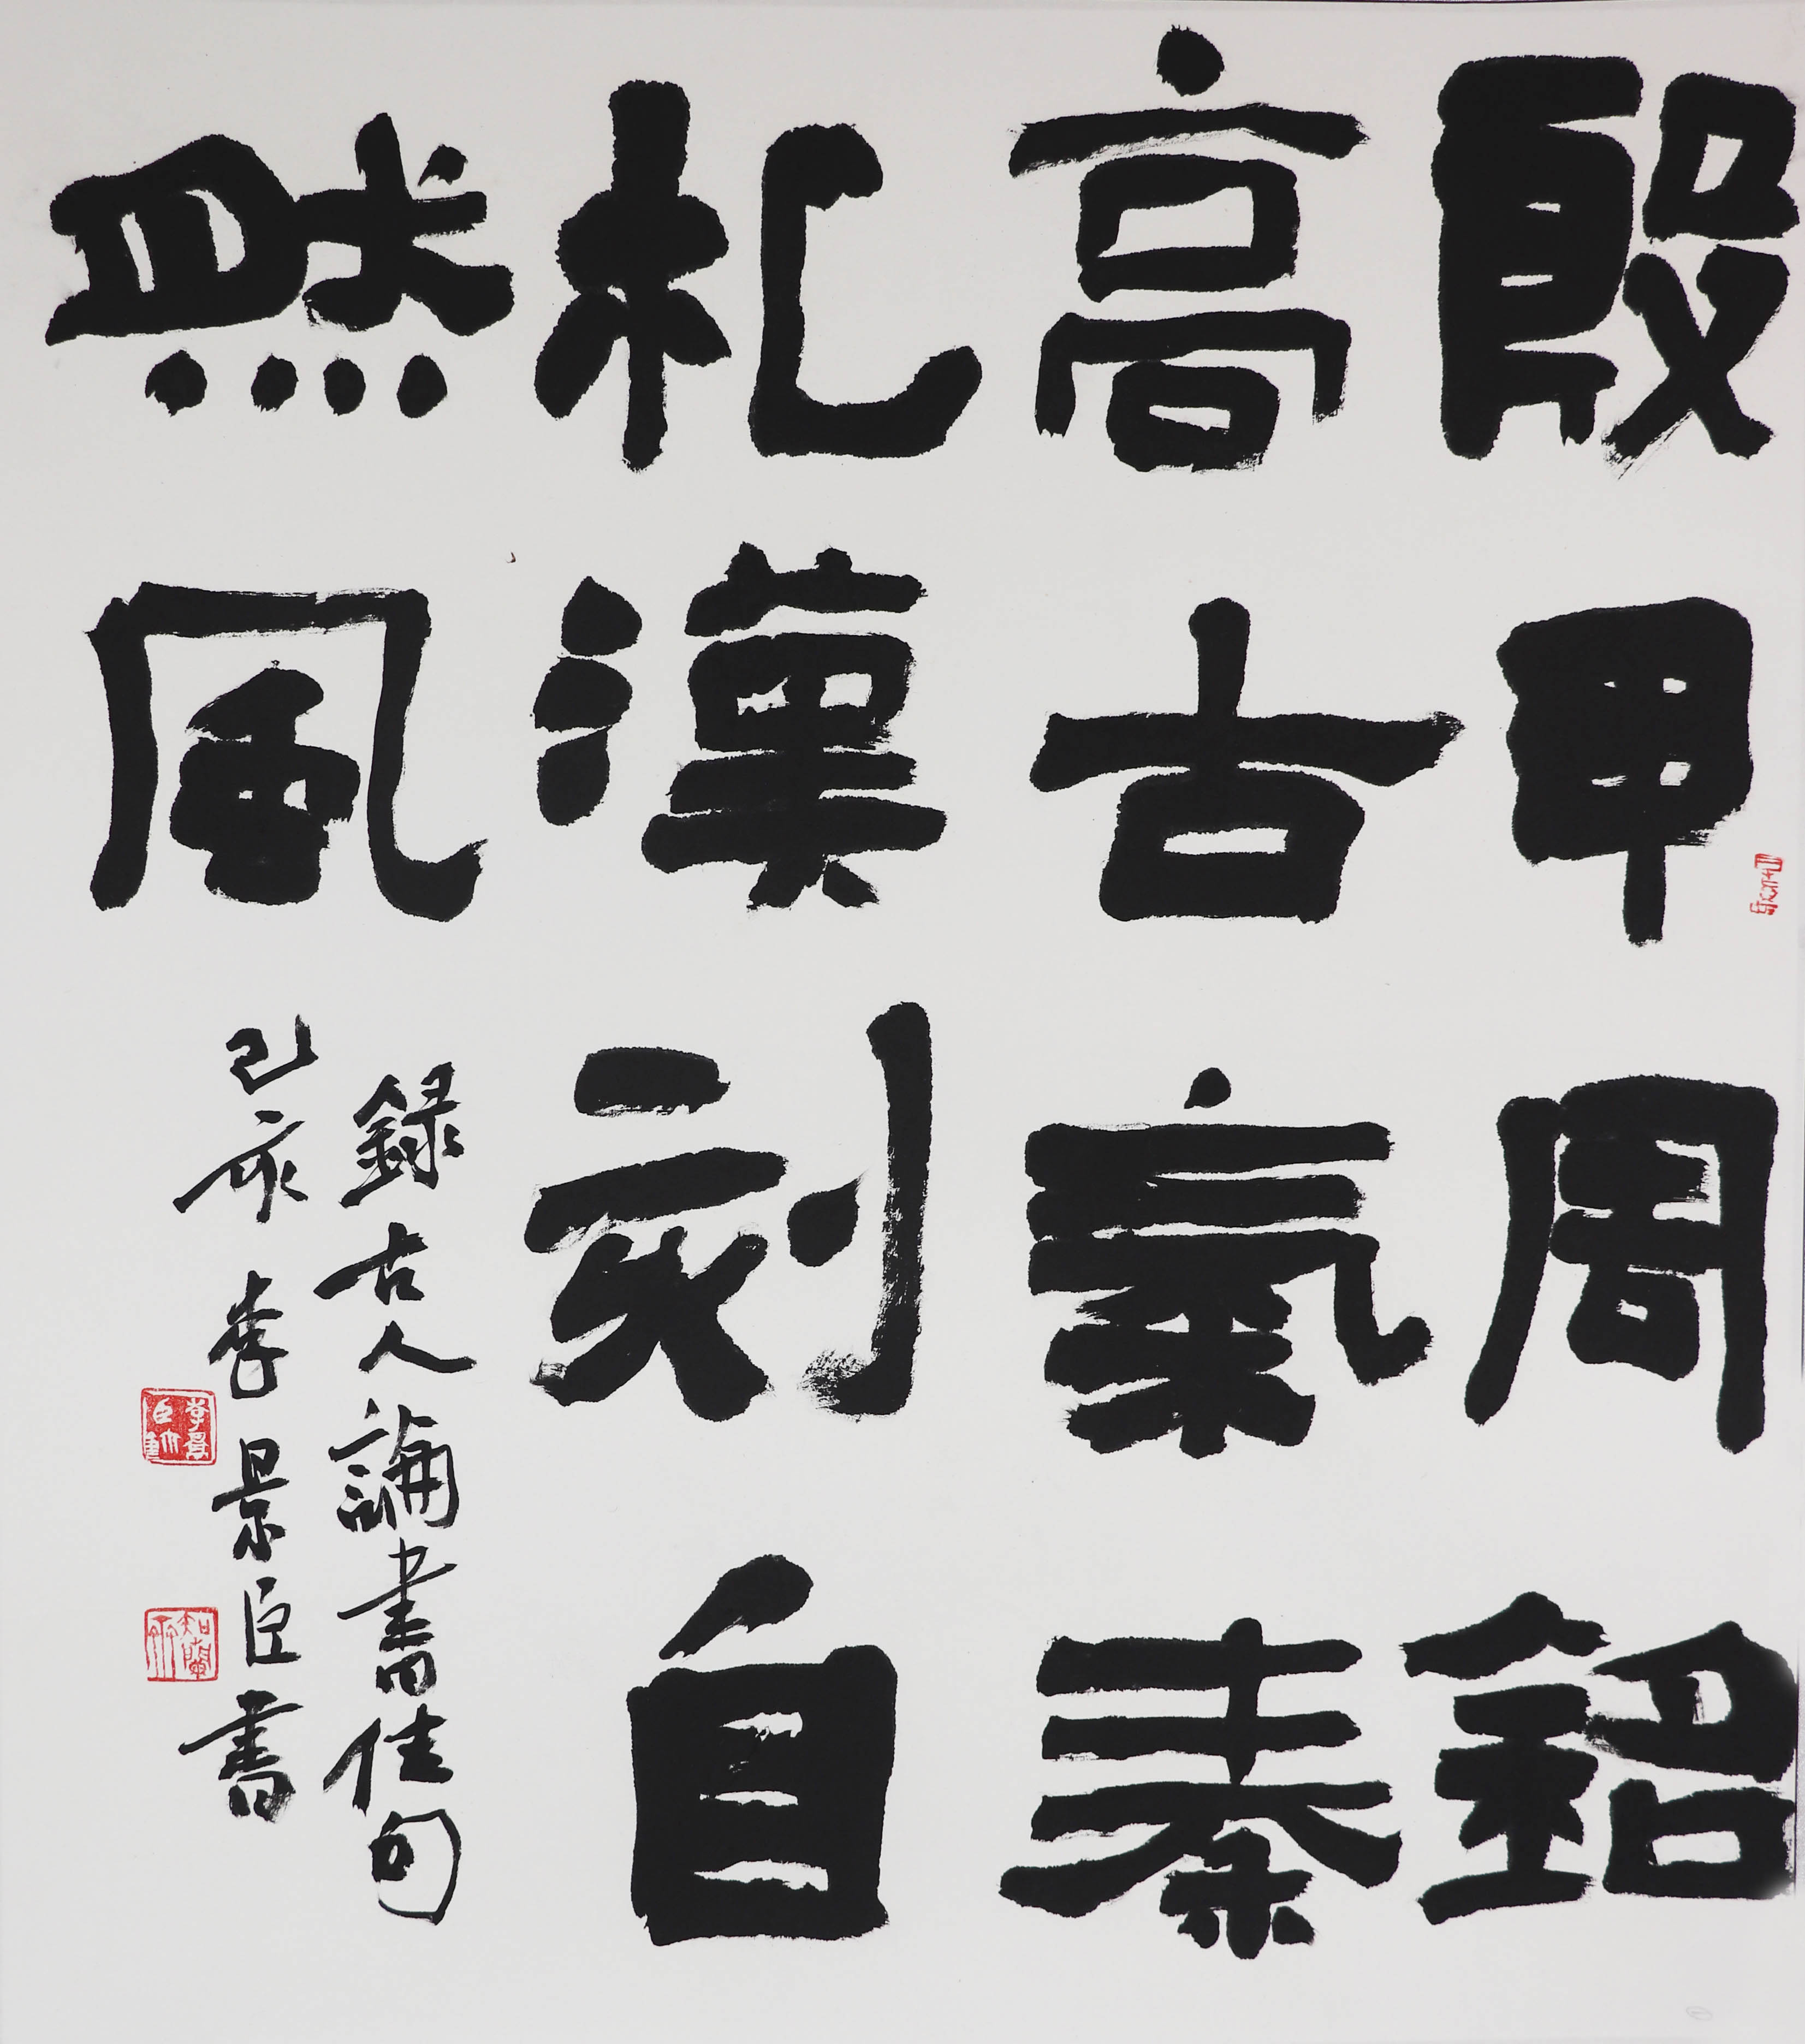 殷甲周銘
高古氣秦
札漢刻自
然風
録古人論書佳句
己亥李景臣書
李景臣印